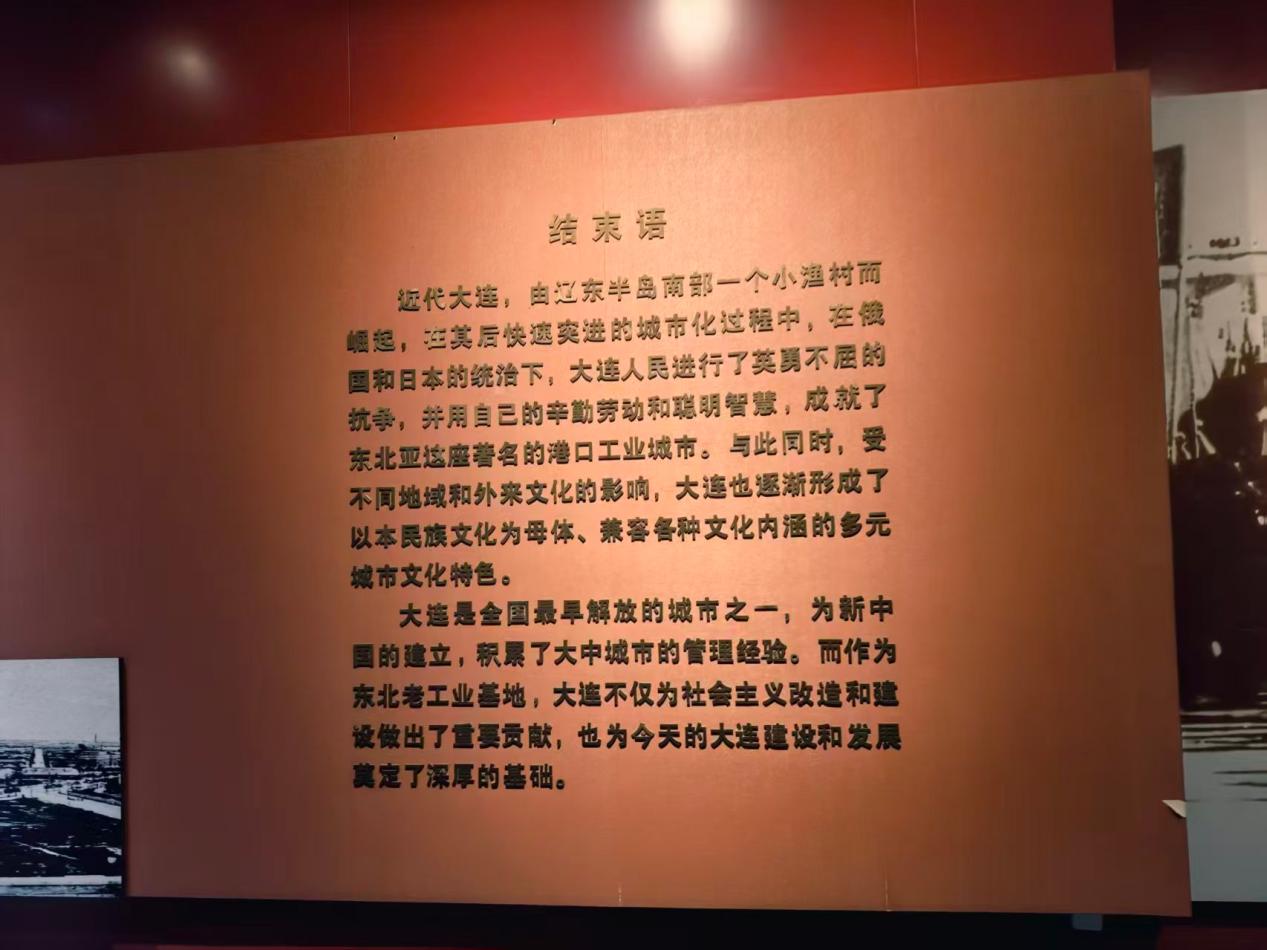 结束语
近代大连，由辽东半岛南部一个小渔村而
崛起，在其后快速突进的城市化过程中，在俄
国和日本的统治下，大连人民进行了英勇不屈的
抗争，并用自己的辛勤劳动和聪明智慧，成就了
东北亚这座著名的港口工业城市。与此同时，受
不同地域和外来文化的影响，大连也逐渐形成了
以本民族文化为母体、兼容各种文化内涵的多元
城市文化特色。
大连是全国最早解放的城市之一，为新中
国的建立，积累了大中城市的管理经验。而作为
东北老工业基地，大连不仅为社会主义改造和建
设做出了重要贡献，也为今天的大连建设和发展
奠定了深厚的基础。